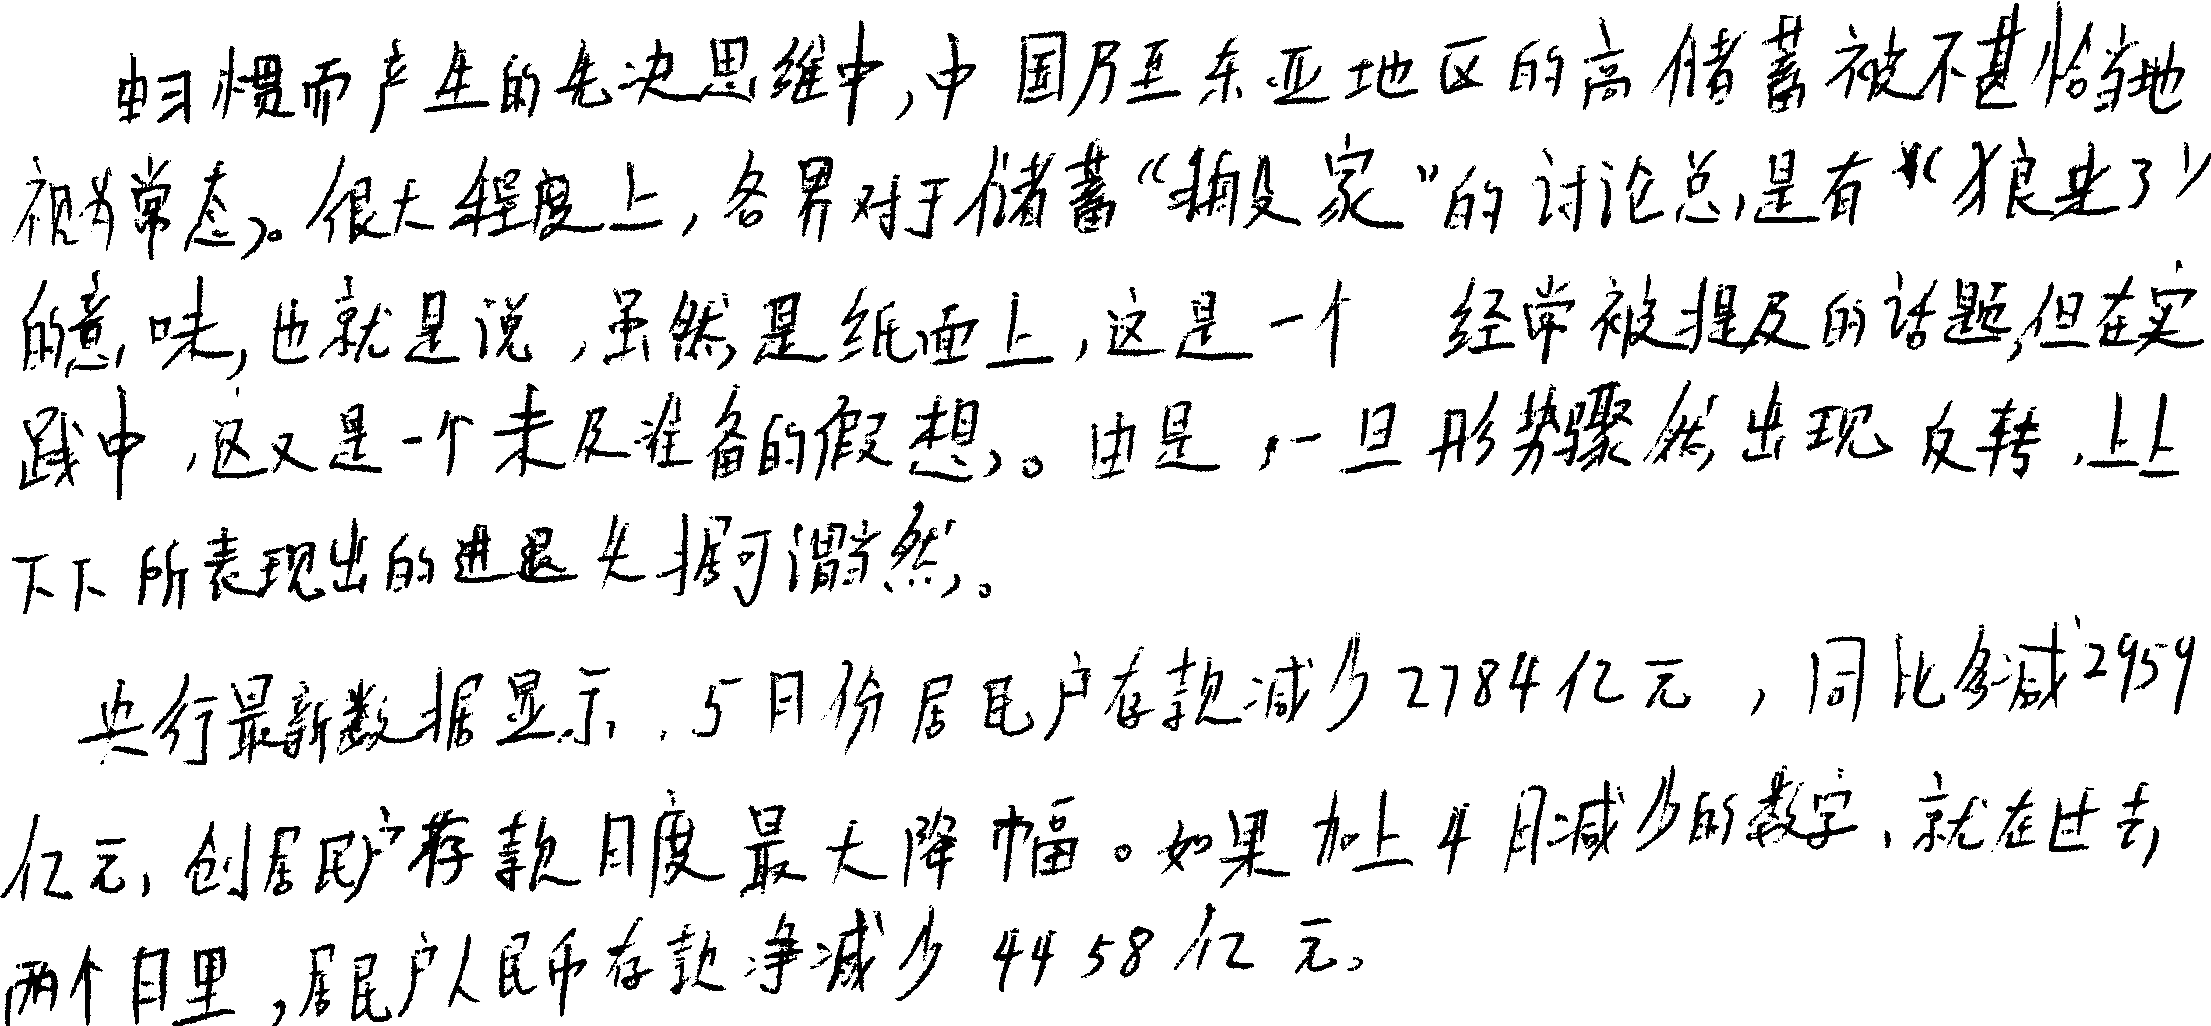 由习惯而产生的先决思维中,中国乃至东亚地区的高储蓄被不甚恰当地
视为常态。很大程度上,各界对于储蓄“搬家”的讨论总是有“狼来了”
的意味,也就是说,虽然是纸面上,这是一个经常被提及的话题,但在实
践中,这又是一个未及准备的假想。由是,一旦形势骤然出现反转,上上
下下所表现出的进退失据可谓当然。
央行最新数据显示,5月份居民户存款减少2784亿元,同比多减2959
亿元,创居民户存款月度最大降幅。如果加上4月减少的数字,就在过去
两个月里,居民户人民币存款净减少4458亿元。